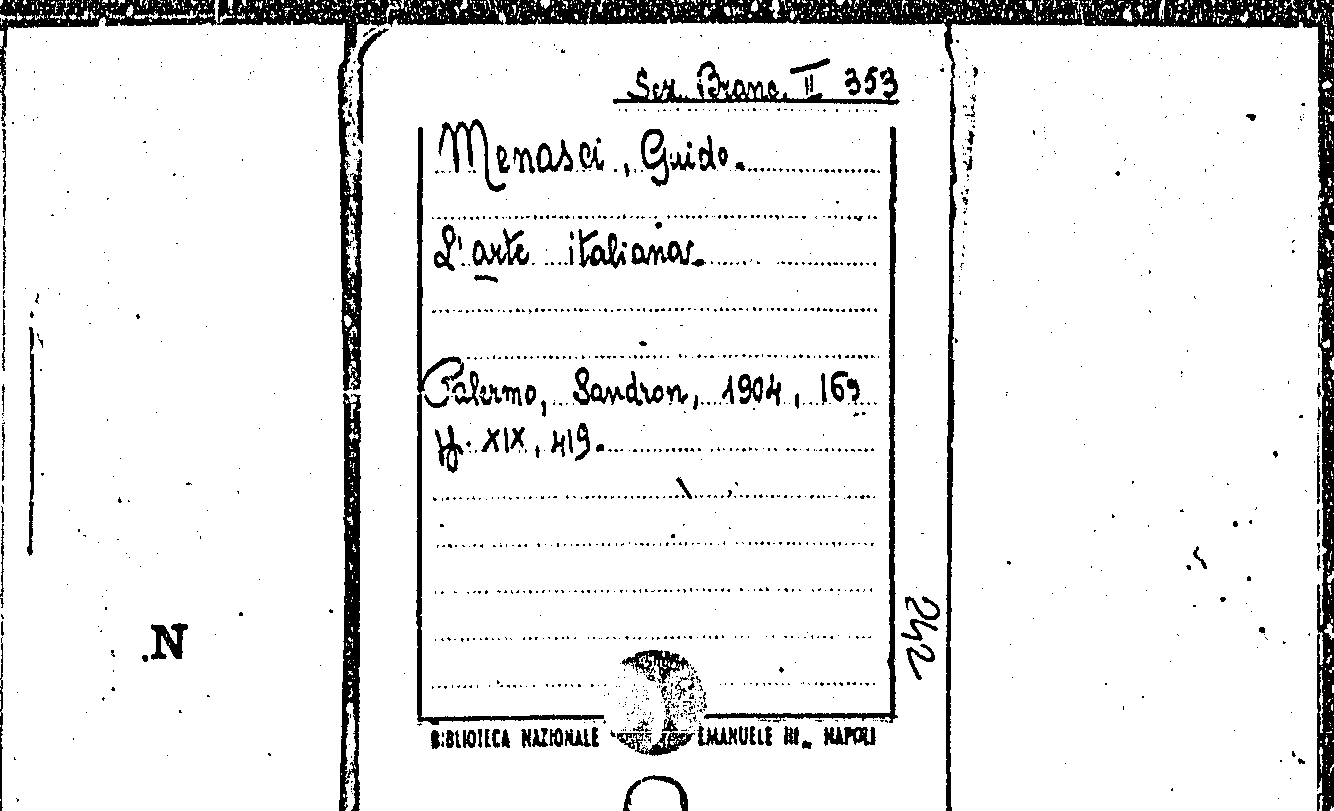 Sez. Branc. II 353
Menasci, Guido.
L'arte italiana.
Palermo, Sandron, 1904, 16º
pp. XIX, 419.
242
N
BIBLIOTECA NAZIONALE EMANUELE III - NAPOLI